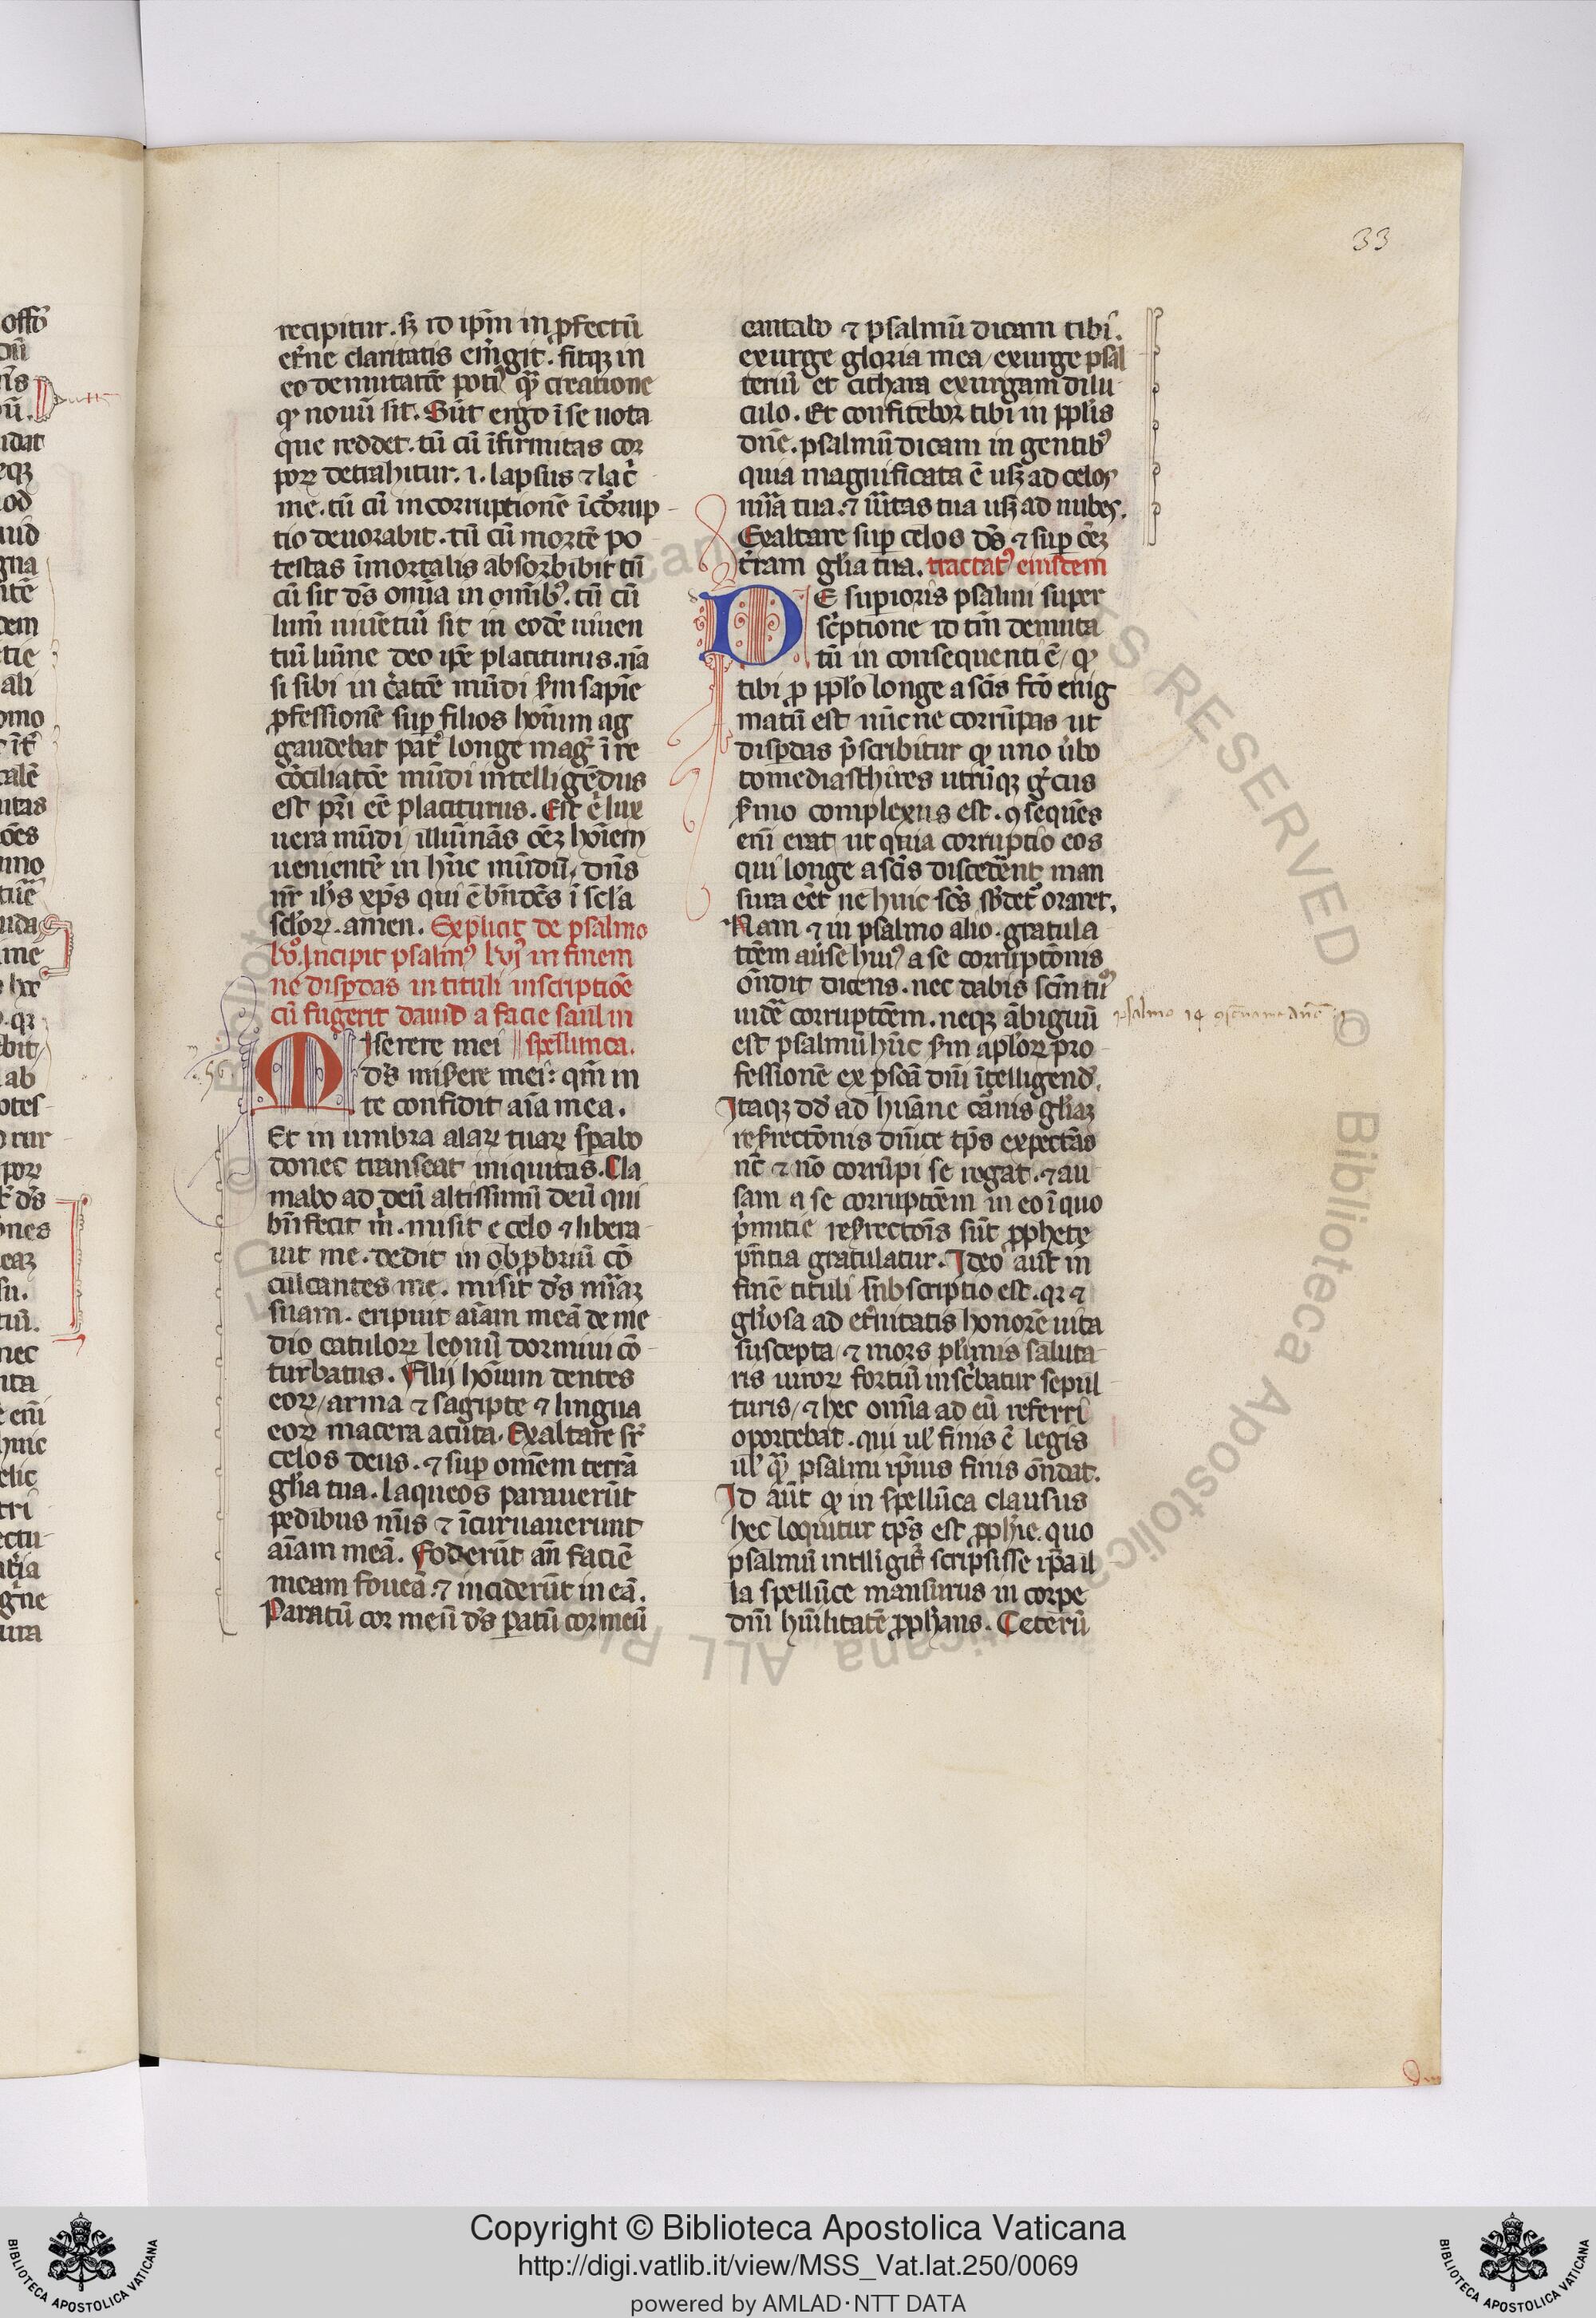 33
recipitur. sꝫ id ip̄m in ꝓfectū
et̄ne claritatis em̄git. fitqꝫ in
eo demutatōe poti⁹ qͣꝫ creatione
qͦ nouū sit. Sūt ergo ī se uota
que reddet. tū cū īfirmitas cor
poꝝ detrahitur. i. lapsus ⁊ lac̄
me. tū cū incorruptionē īcōrup
tio deuorabit. tū cū mortē po
testas īmortalis absorbibit tū
cū sit ds̄ om̄ia in om̄ib⁹. tū cū
lum̄ uiuētiū sit in eodē uiuen
tiū lūine deo ip̄e placiturus. nā
si sibi in c̄atōe mūdi ẜm sapīe
ꝓfessionē suꝑ filios hoīum ag
gaudebat pat̄ longe maḡ ī re
cōciliatōe mūdi intelligēdus
est pr̄i eē̄ placiturus. Est ē̄ lux
uera mūdi illuīnās oēꝫ hoīem
uenientē in hūc mūdū, dn̄s
nr̄ ih̄s xp̄s qui ē bn̄dc̄s ī scl̄a
scl̄oꝝ. amen. Explicit de psalmo
lvͦ. Incipit psalm⁹ lvj in finem
ne disꝑdas in tituli inscriptiōe
cū fugerit dauid a facie saul in
Miserere mei spelunca.
ds̄ miẜere mei: qm̄ in
te confidit aīa mea.
Et in umbra alaꝝ tuaꝝ sꝑabo
donec transeat iniquitas. Cla
mabo ad deū altissimū deū qui
bn̄fecit m̄. misit e celo ⁊ libera
uit me. dedit in obꝓbriū cō
culcantes me. misit ds̄ mīaꝫ
suam. eripuit aīam meā de me
dio catuloꝝ leonū dormiui cō
turbatus. Filij hoīum dentes
eoꝝ/ arma ⁊ sagipte ⁊ lingua
eoꝝ macera acuta. Exaltare sr̄
celos deus. ⁊ suꝑ omēm terrā
gl̄ia tua. laqueos parauerūt
pedibus m̄is ⁊ īcuruauerunt
aīam meā. Foderūt an̄ faciē
meam foueā. ⁊ inciderūt in eā.
Paratū cor meū ds̄ ꝑatū cor meū
cantabo ⁊ psalmū dicam tibi.
exurge gloria mea/ exurge psal
teriū et cithara exurgam dilu
culo. Et confitebor tibi in ppl̄is
dn̄e. psalmū dicam in gentib⁹
quia magnificata ē usqꝫ ad celos
mīa tua. ⁊ ūitas tua usqꝫ ad nubes.
Exaltare suꝑ celos ds̄ ⁊ suꝑ oēꝫ
t̄ram gl̄ia tua. tractat⁹ eiusdem
De suꝑioris psalmi super
sc̄ptione id tm̄ demuta
tū in consequenti ē, qͦ
tibi ꝓ ppl̄o longe a scīs fcō enig
matū est nūc ne corrūpas ut
disꝑdas p̄scribitur qͦ uno ūbo
tomediasthires utrūqꝫ gͤcus
ẜmo complexus est. ꝯsequēs
eni erat ut quia corruptio eos
qui longe a scīs discedēnt man
sura eēt ne huic scs̄ ẜdet̄ oraret.
Nam ⁊ in psalmo alio. gratula
tōem aūse hui⁹ a se corruptōnis
on̄dit dicens. nec dabis scm̄ tuū
uidē corruptōem. neqꝫ ābiguū
est psalmū hūc ẜm apl̄oꝝ pro
fessionē ex ꝑsōa dn̄i ītelligend̄.
Itaqꝫ dd̄ ad hūane caͬnis gl̄iaꝫ
reẜrectōnis dn̄ice tp̄s expectās
nc̄ ⁊ nō corrūpi se rogat. ⁊ cau
sam a se corruptōem in eo ī quo
p̄mitie reẜrectoīs sūt ꝓphete
pn̄tia gratulatur. Ideo aūt in
finē tituli sub scriptio est. qꝛ ⁊
gl̄iosa ad et̄nitatis honorē uita
suscepta, ⁊ mors pl̄imis saluta
ris uiroꝝ fortiū insc̄batur sepul
turis, ⁊ hec om̄ia ad eū referri
oportebat. qui ul̄ finis ē legis
ul̄ qͣꝫ psalmi ip̄ius finis on̄dat.
Id aūt qͦ in spellūca clausus
hec loquitur tp̄s est ꝓph̄ie. quo
psalmū intlligit̄ scripsisse ip̄a il
la spellūce mansurus in corꝑe
dn̄i hūilitatē ꝓph̄ans. Ceterū
psalmo 14
Copyright © Biblioteca Apostolica Vaticana
http://digi.vatlib.it/view/MSS_Vat.lat.250/0069
powered by AMLAD·NTT DATA
BIBLIOTECA APOSTOLICA VATICANA
BIBLIOTECA APOSTOLICA VATICANA